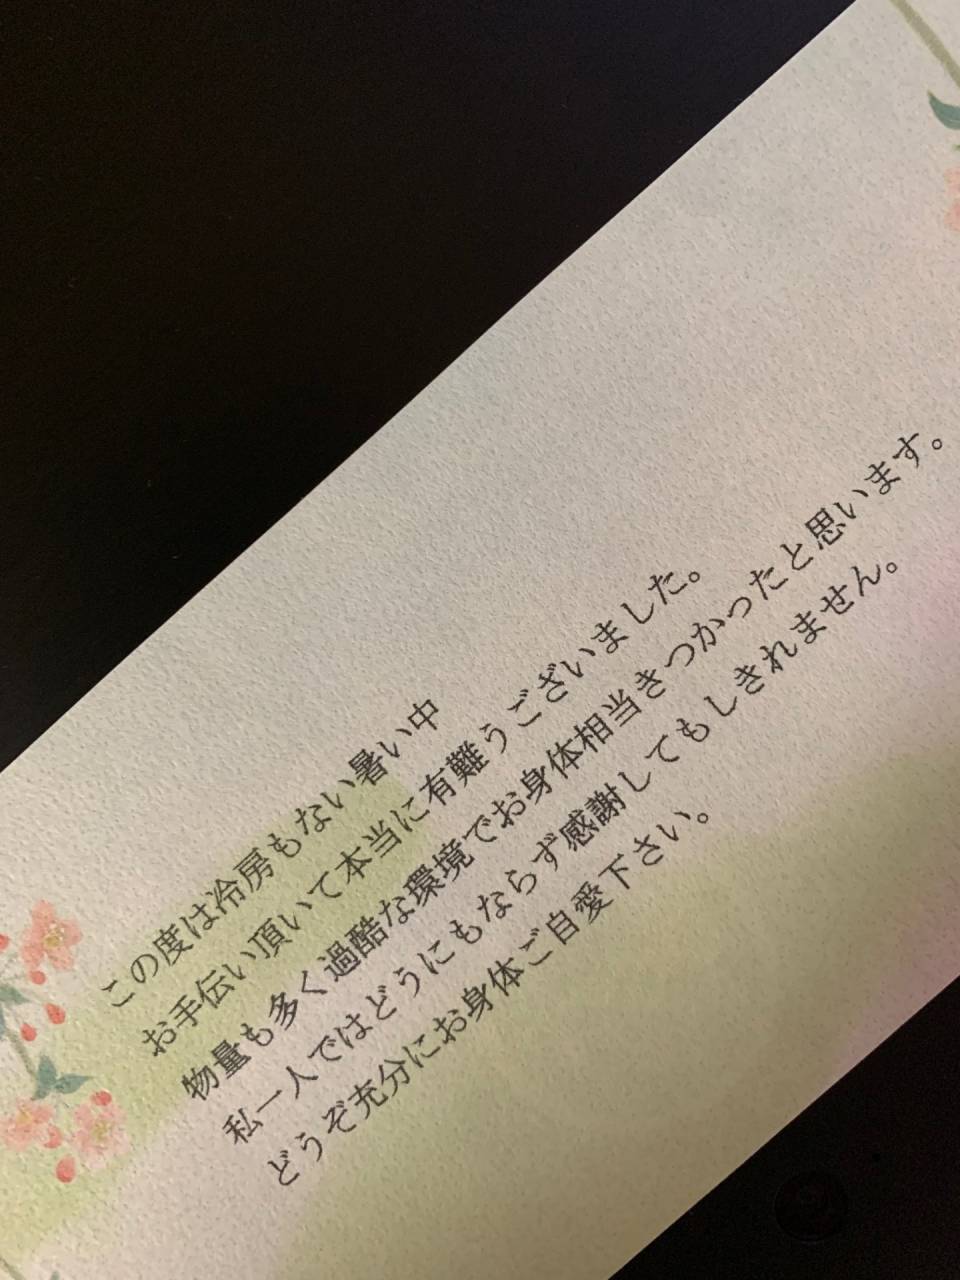 この度は冷房もない暑い中
お手伝い頂いて本当に有難うございました。
物量も多く過酷な環境でお身体相当きつかったと思います。
私一人ではどうにもならず感謝してもしきれません。
どうぞ充分にお身体ご自愛下さい。